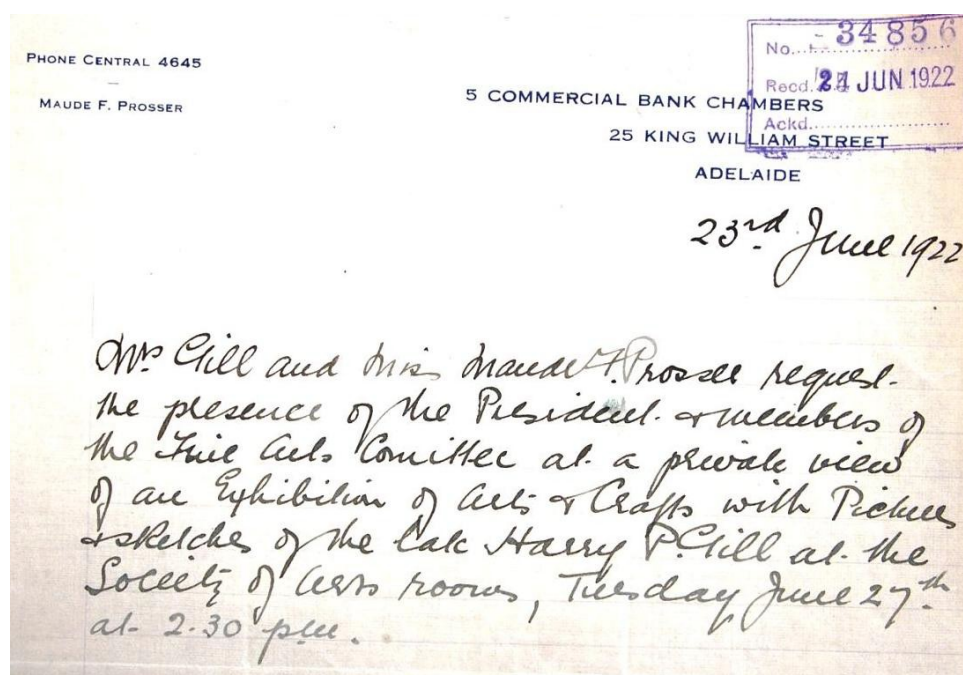 PHONE CENTRAL 4645
MAUDE F. PROSSER
No. 34856
Recd. 24 JUN 1922
Ackd.
5 COMMERCIAL BANK CHAMBERS
25 KING WILLIAM STREET
ADELAIDE
23rd June 1922
Mrs Gill and Miss Maude F. Prosser request
the presence of the President & members of
the Fine Arts Comittee at a private view
of an Exhibition of Arts & Crafts with Pictures
& sketches of the late Harry P. Gill at the
Society of Arts rooms, Tuesday June 27th
at 2.30 pm.